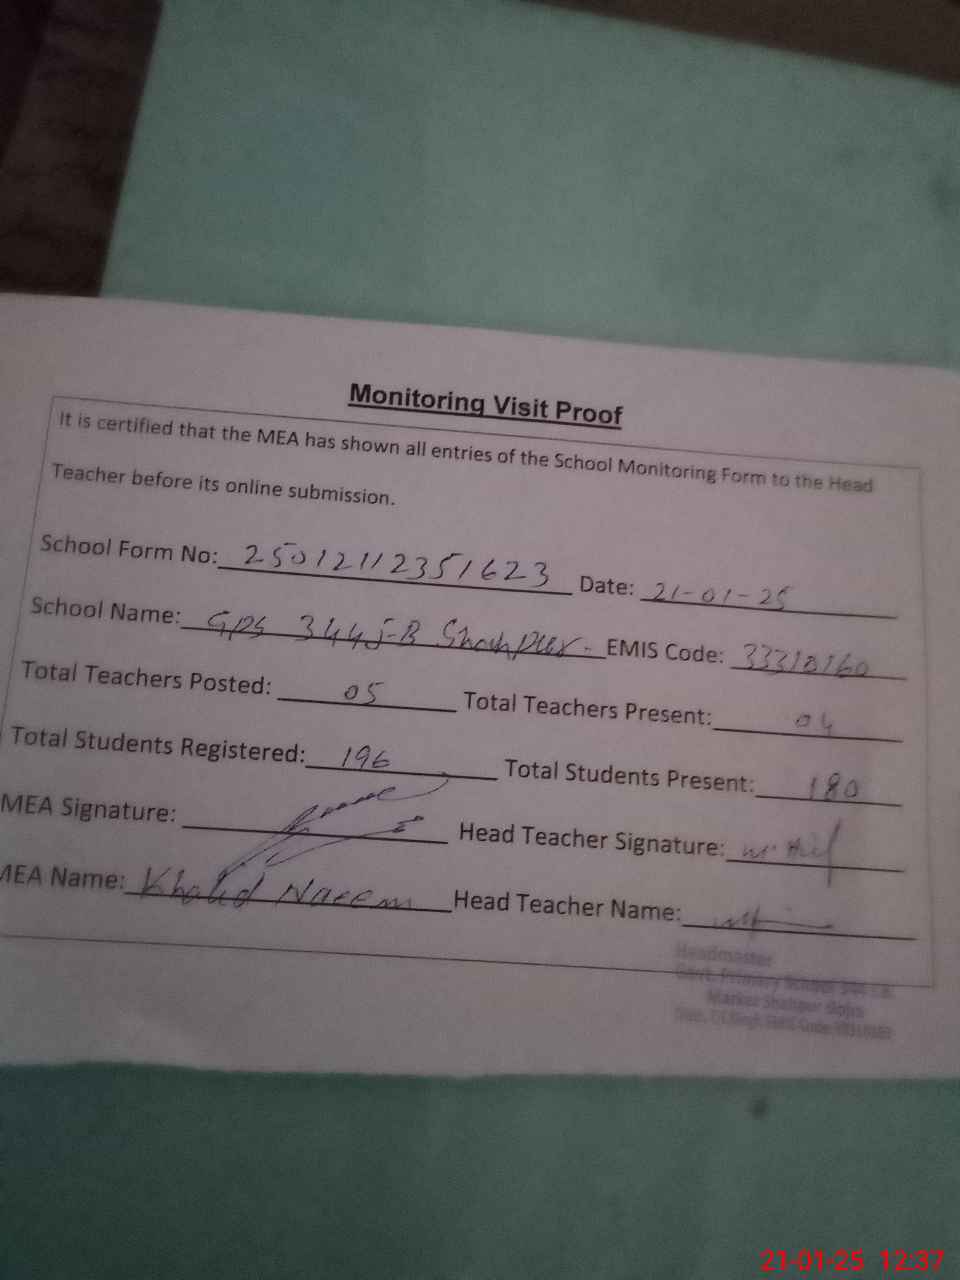 Monitoring Visit Proof
It is certified that the MEA has shown all entries of the School Monitoring Form to the Head
Teacher before its online submission.
School Form No: 25012112351623 Date: 21-01-25
School Name: GPS 344 J-B Shahpur. EMIS Code: 33310160
Total Teachers Posted: 05 Total Teachers Present: 04
Total Students Registered: 196 Total Students Present: 180
MEA Signature: Head Teacher Signature:
MEA Name: Khalid Naeem Head Teacher Name:
Headmaster
Govt. Primary School
21-01-25 12:37